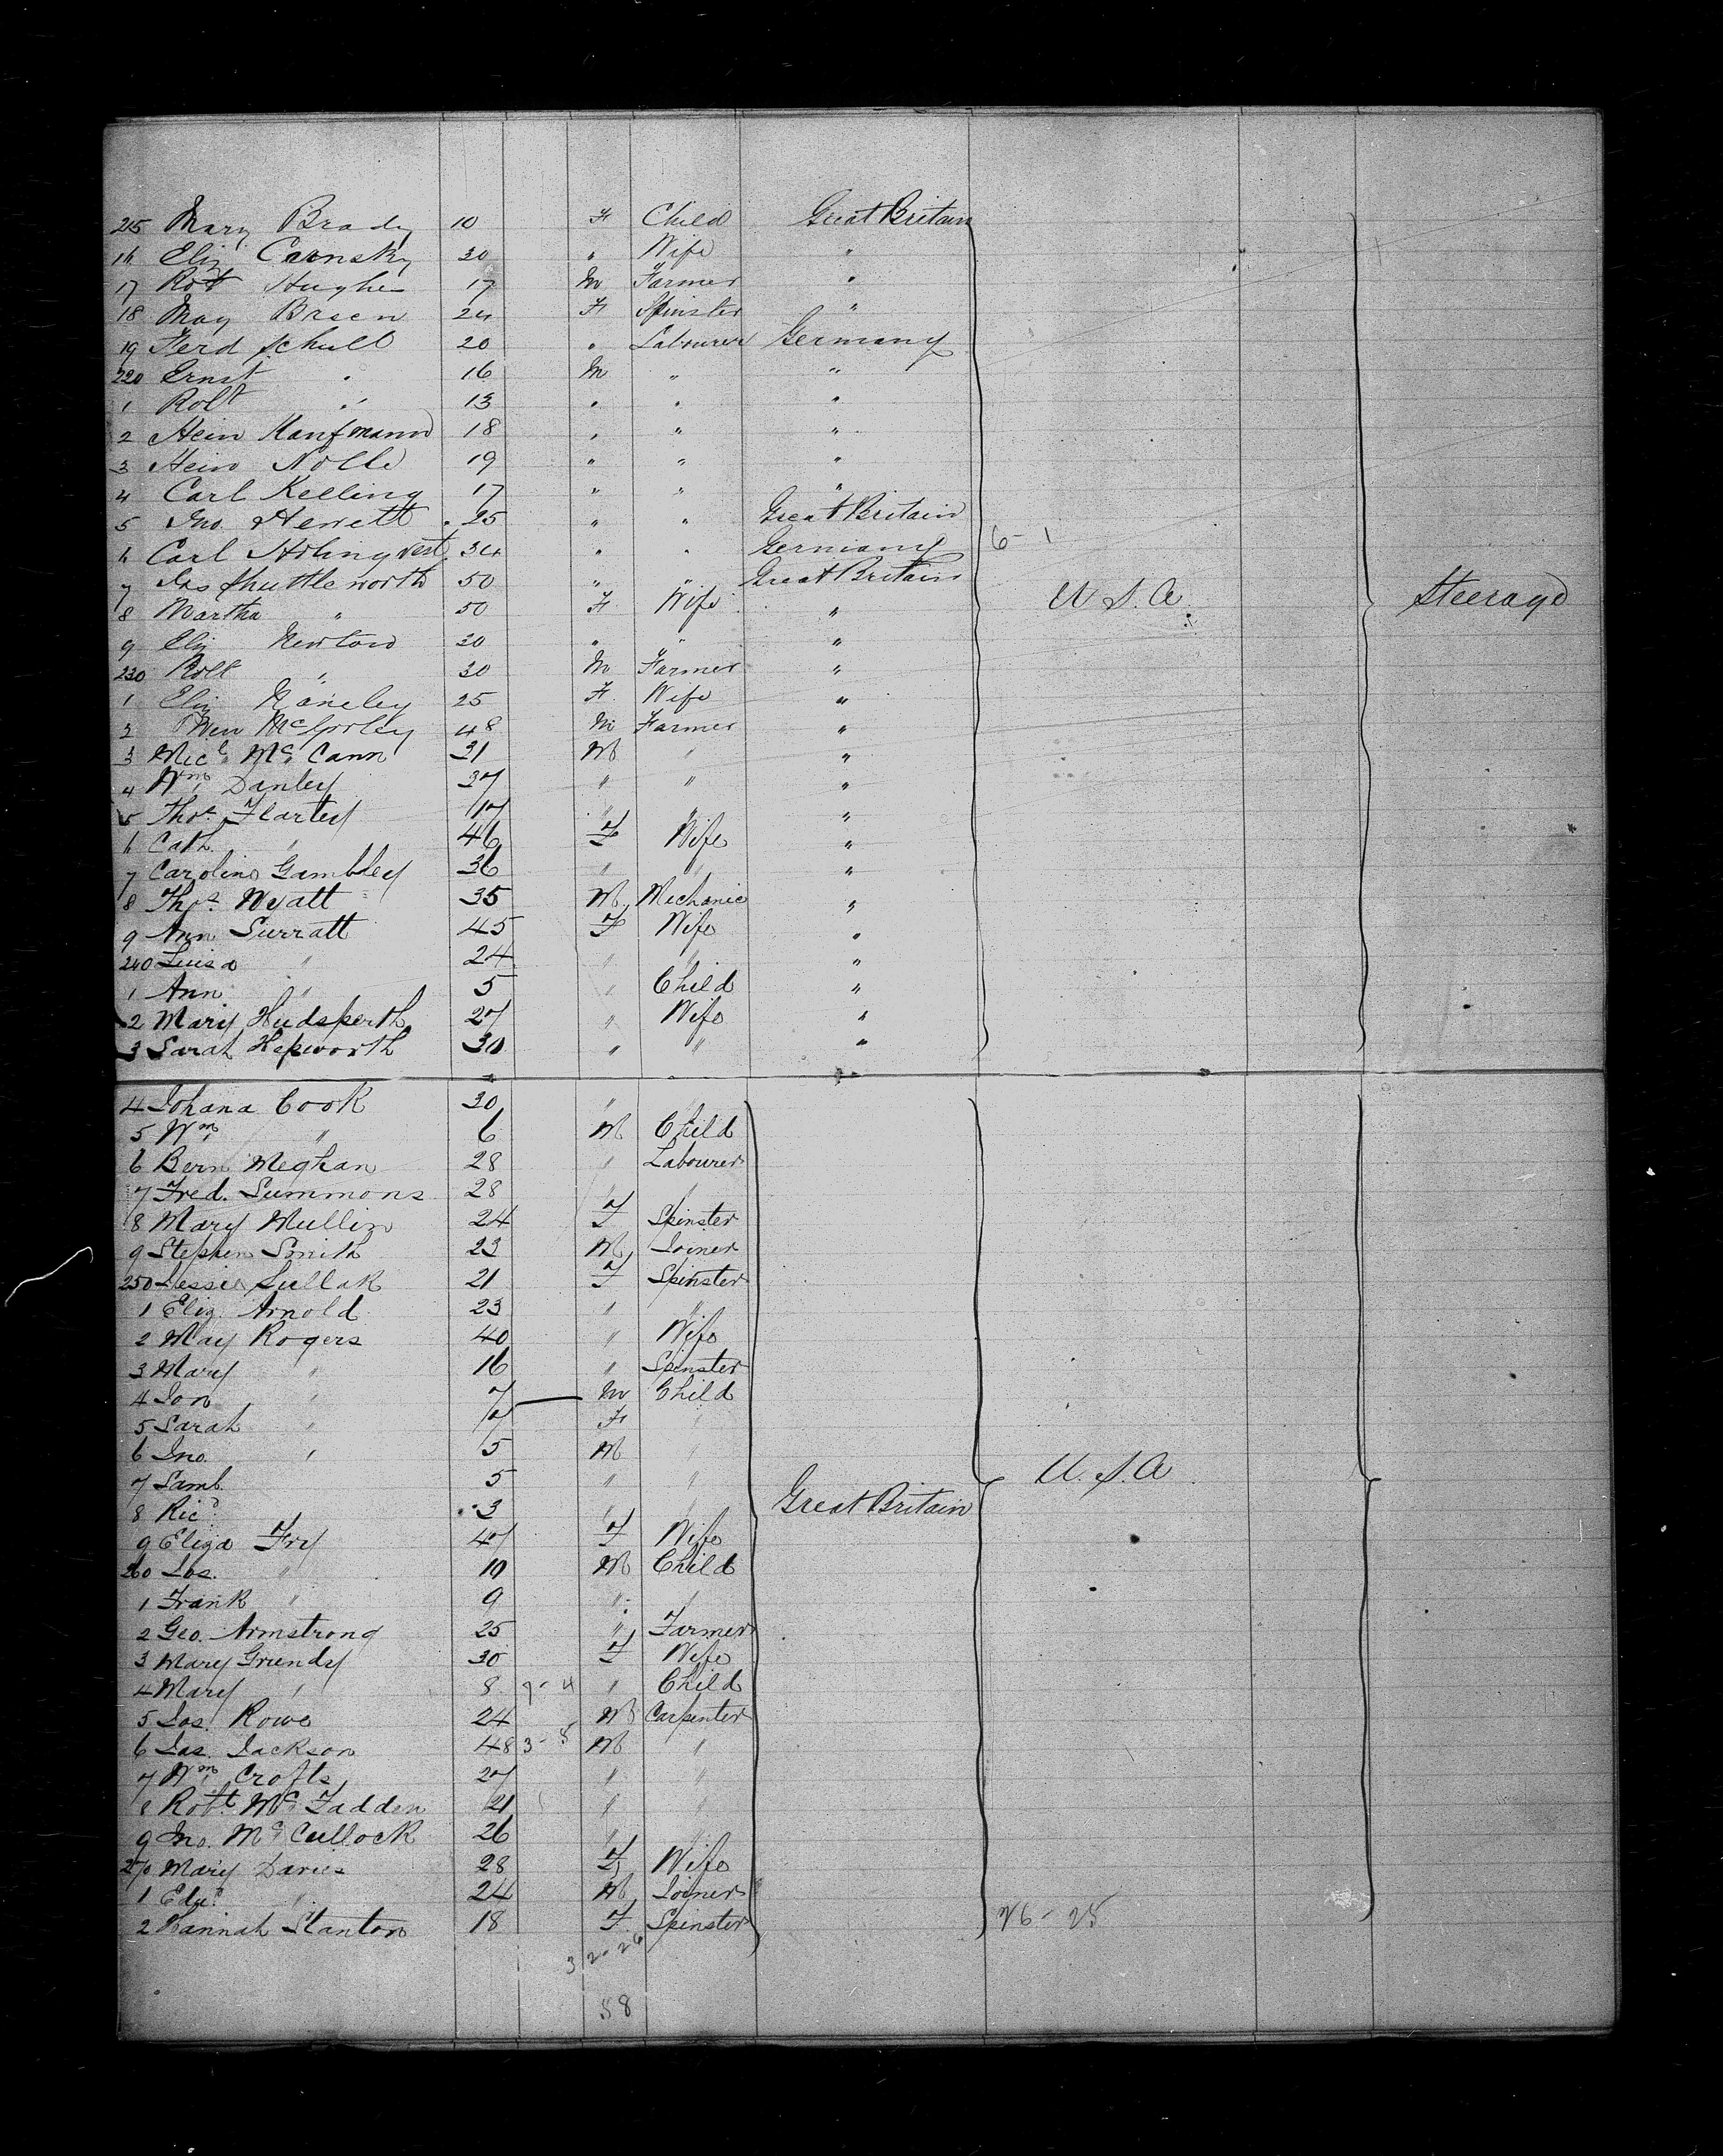 215 Mary Brady 10 F Child Great Britain
16 Eliz Carnsky 30 " Wife "
17 Robt Hughes 17 M Farmer "
18 May Breen 24 F Spinster "
19 Ferd Schult 20 " Labourer Germany
220 Ernst " 16 M " "
1 Robt " 13 " " "
2 Hein Kaufmann 18 " " "
3 Hein Nolle 19 " " "
4 Carl Kelling 17 " " "
5 Jno. Hewett 25 " " Great Britain
6 Carl 34 " " Germany 6 - 1
7 Jas Shuttleworth 50 " " Great Britain
8 Martha " 50 F Wife " U.S.A. Steerage
9 Eliz Newton 30 " " "
230 Robt " 30 M Farmer "
1 Eliz 25 F Wife "
2 Owen McGorley 48 M Farmer "
3 Micl. Mc. Cann 31 M " "
4 Wm. Danley 37 " " "
5 Thos. Flartey 17 " " "
6 Cath. " 46 F Wife "
7 Caroline Gambley 36 " " "
8 Thos. Wyatt 35 M Mechanic "
9 Ann Surratt 45 F Wife "
240 Luisa " 24 " " "
1 Ann " 5 " Child "
2 Mary Hudsperth 27 " Wife "
3 Sarah Hepworth 30 " " "
4 Johana Cook 30 " "
5 Wm. " 6 M Child
6 Bern Meghan 28 " Labourer
7 Fred. Summons 28 " "
8 Mary Mullin 24 F Spinster
9 Stephen Smith 23 M Joiner
250 Jessie Sullak 21 F Spinster
1 Eliz. Arnold 23 " "
2 May Rogers 40 " Wife
3 Mary " 16 " Spinster
4 Jon " 7 M Child
5 Sarah " 7 F "
6 Jno. " 5 M "
7 Saml. 5 " " U.S.A
8 Ricd. 3 " " Great Britain
9 Eliza Fry 47 F Wife
260 Jos. " 10 M Child
1 Frank " 9 " "
2 Geo. Armstrong 25 " Farmer
3 Mary Grundy 30 F Wife
4 Mary " 8 9 - 4 " Child
5 Jos. Rowe 24 M Carpenter
6 Jas. Jackson 48 3 - 8 M "
7 Wm. Crofts 27 " "
8 Robt. Mc. Fadden 21 " "
9 Jno. Mc. Cullock 26 " "
270 Mary Davies 28 F Wife
1 Edwd. " 24 M Joiner
2 Hannah Stanton 18 F Spinster 26 - 25
32 - 26
58